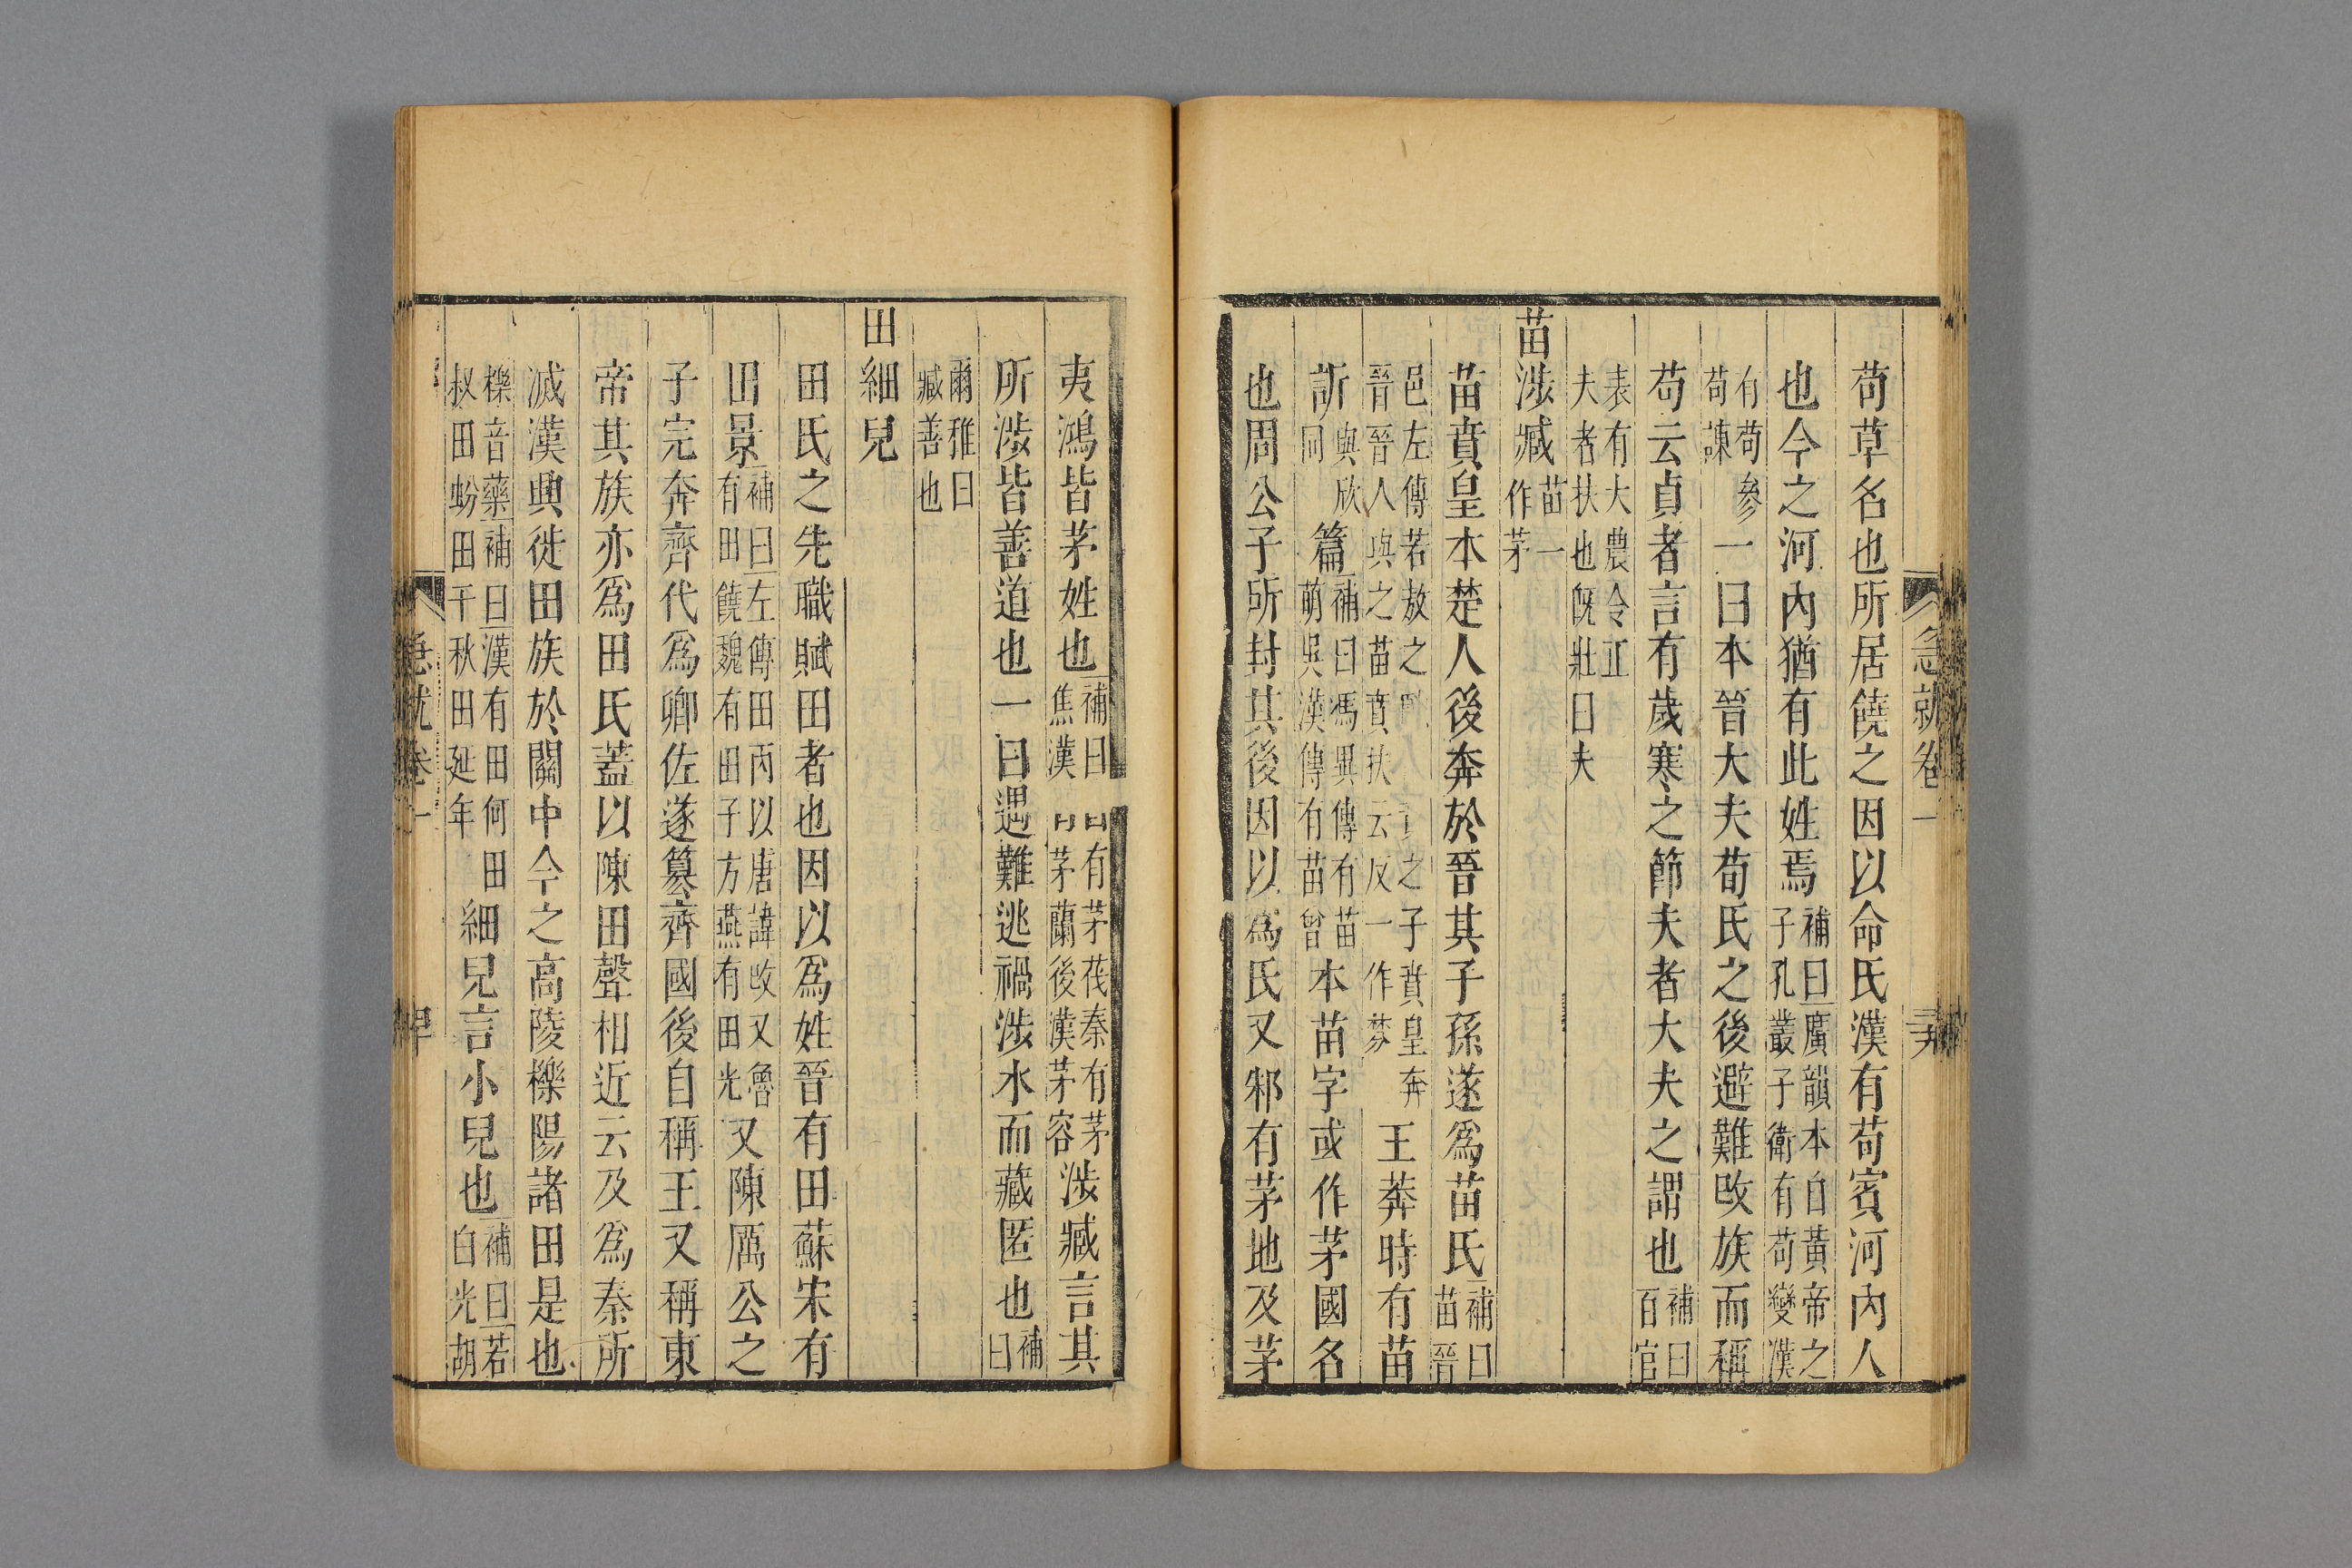 急就卷一 三九
荀草名也所居饒之因以命氏漢有荀賓河內人
也今之河內猶有此姓焉補曰廣韻本自黃帝之子孔叢子衛有荀變漢
有荀參荀諫一曰本晉大夫荀氏之後避難改族而稱
荀云貞者言有歲寒之節夫者大夫之謂也補曰百官
表有大農令正夫者扶也旣壯曰夫
苗涉臧苗一作茅
苗賁皇本楚人後奔於晉其子孫遂爲苗氏補曰苗晉
邑左傳若敖之之子賁皇奔晉晉人與之苗賁扶云反一作棼王莽時有苗
訢與欣同篇補曰馮異傳有苗萌吳漢傳有苗曾本苗字或作茅國名
也周公子所封其後因以爲氏又邾有茅地及茅
夷鴻皆茅姓也補曰有茅茷秦有茅焦漢茅蘭後漢茅容涉臧言其
所涉皆善道也一曰遇難逃禍涉水而藏匿也補曰
爾雅曰臧善也
田細兒
田氏之先職賦田者也因以爲姓晉有田蘇宋有
田景補曰左傳田丙以唐諱改又魯有田饒魏有田子方燕有田光又陳厲公之
子完奔齊代爲卿佐遂篡齊國後自稱王又稱東
帝其族亦爲田氏蓋以陳田聲相近云及爲秦所
滅漢興徙田族於關中今之高陵櫟陽諸田是也
櫟音藥補曰漢有田何田叔田蚡田千秋田延年細兒言小兒也補曰若白光胡
急就卷一